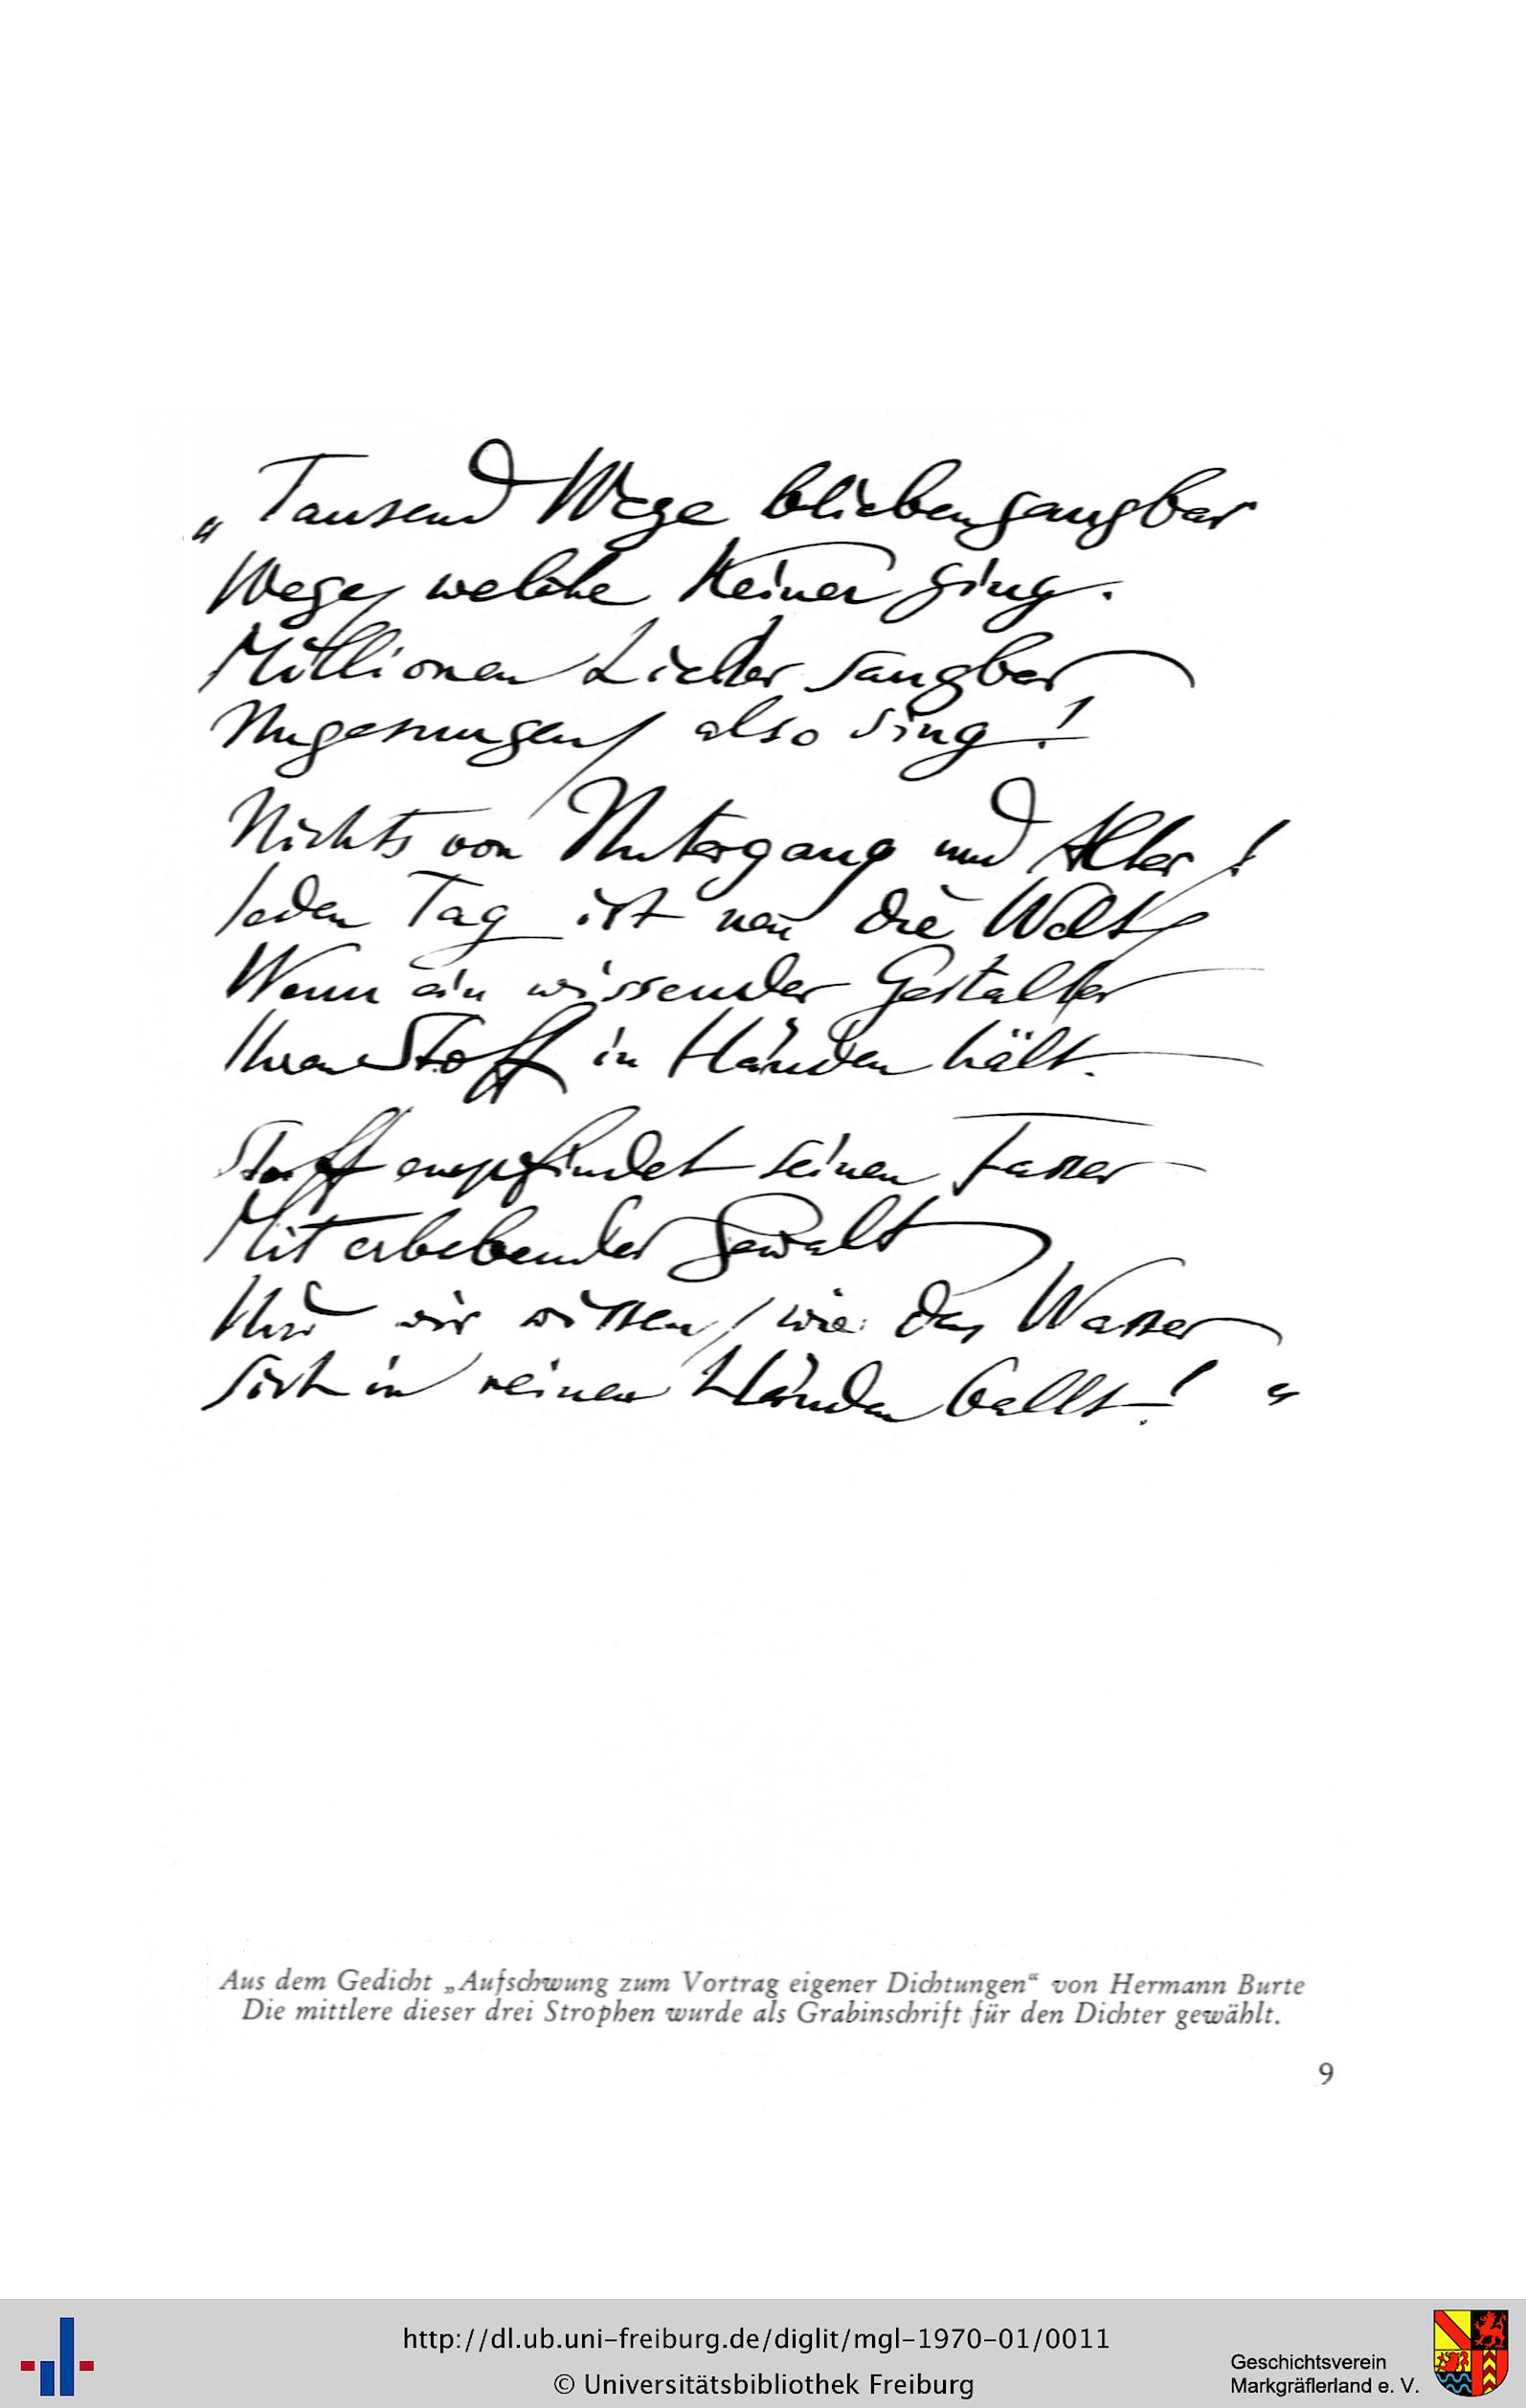 „Tausend Wege blieben gangbar
Wege, welche Keiner ging.
Millionen Lieder sangbar
Ungesungen, also sing!
Nichts von Untergang und Alter!
Jeden Tag ist neu die Welt,
Wenn ein wissender Gestalter
Ihren Stoff in Händen hält.
Stoff empfindet seinen Fasser
Mit erbebender Gewalt
Und wir wissen, wie das Wasser
Sich in reinen Händen ballt!“
Aus dem Gedicht „Aufschwung zum Vortrag eigener Dichtungen“ von Hermann Burte
Die mittlere dieser drei Strophen wurde als Grabinschrift für den Dichter gewählt.
9
http://dl.ub.uni-freiburg.de/diglit/mgl-1970-01/0011
© Universitätsbibliothek Freiburg
Geschichtsverein
Markgräflerland e. V.